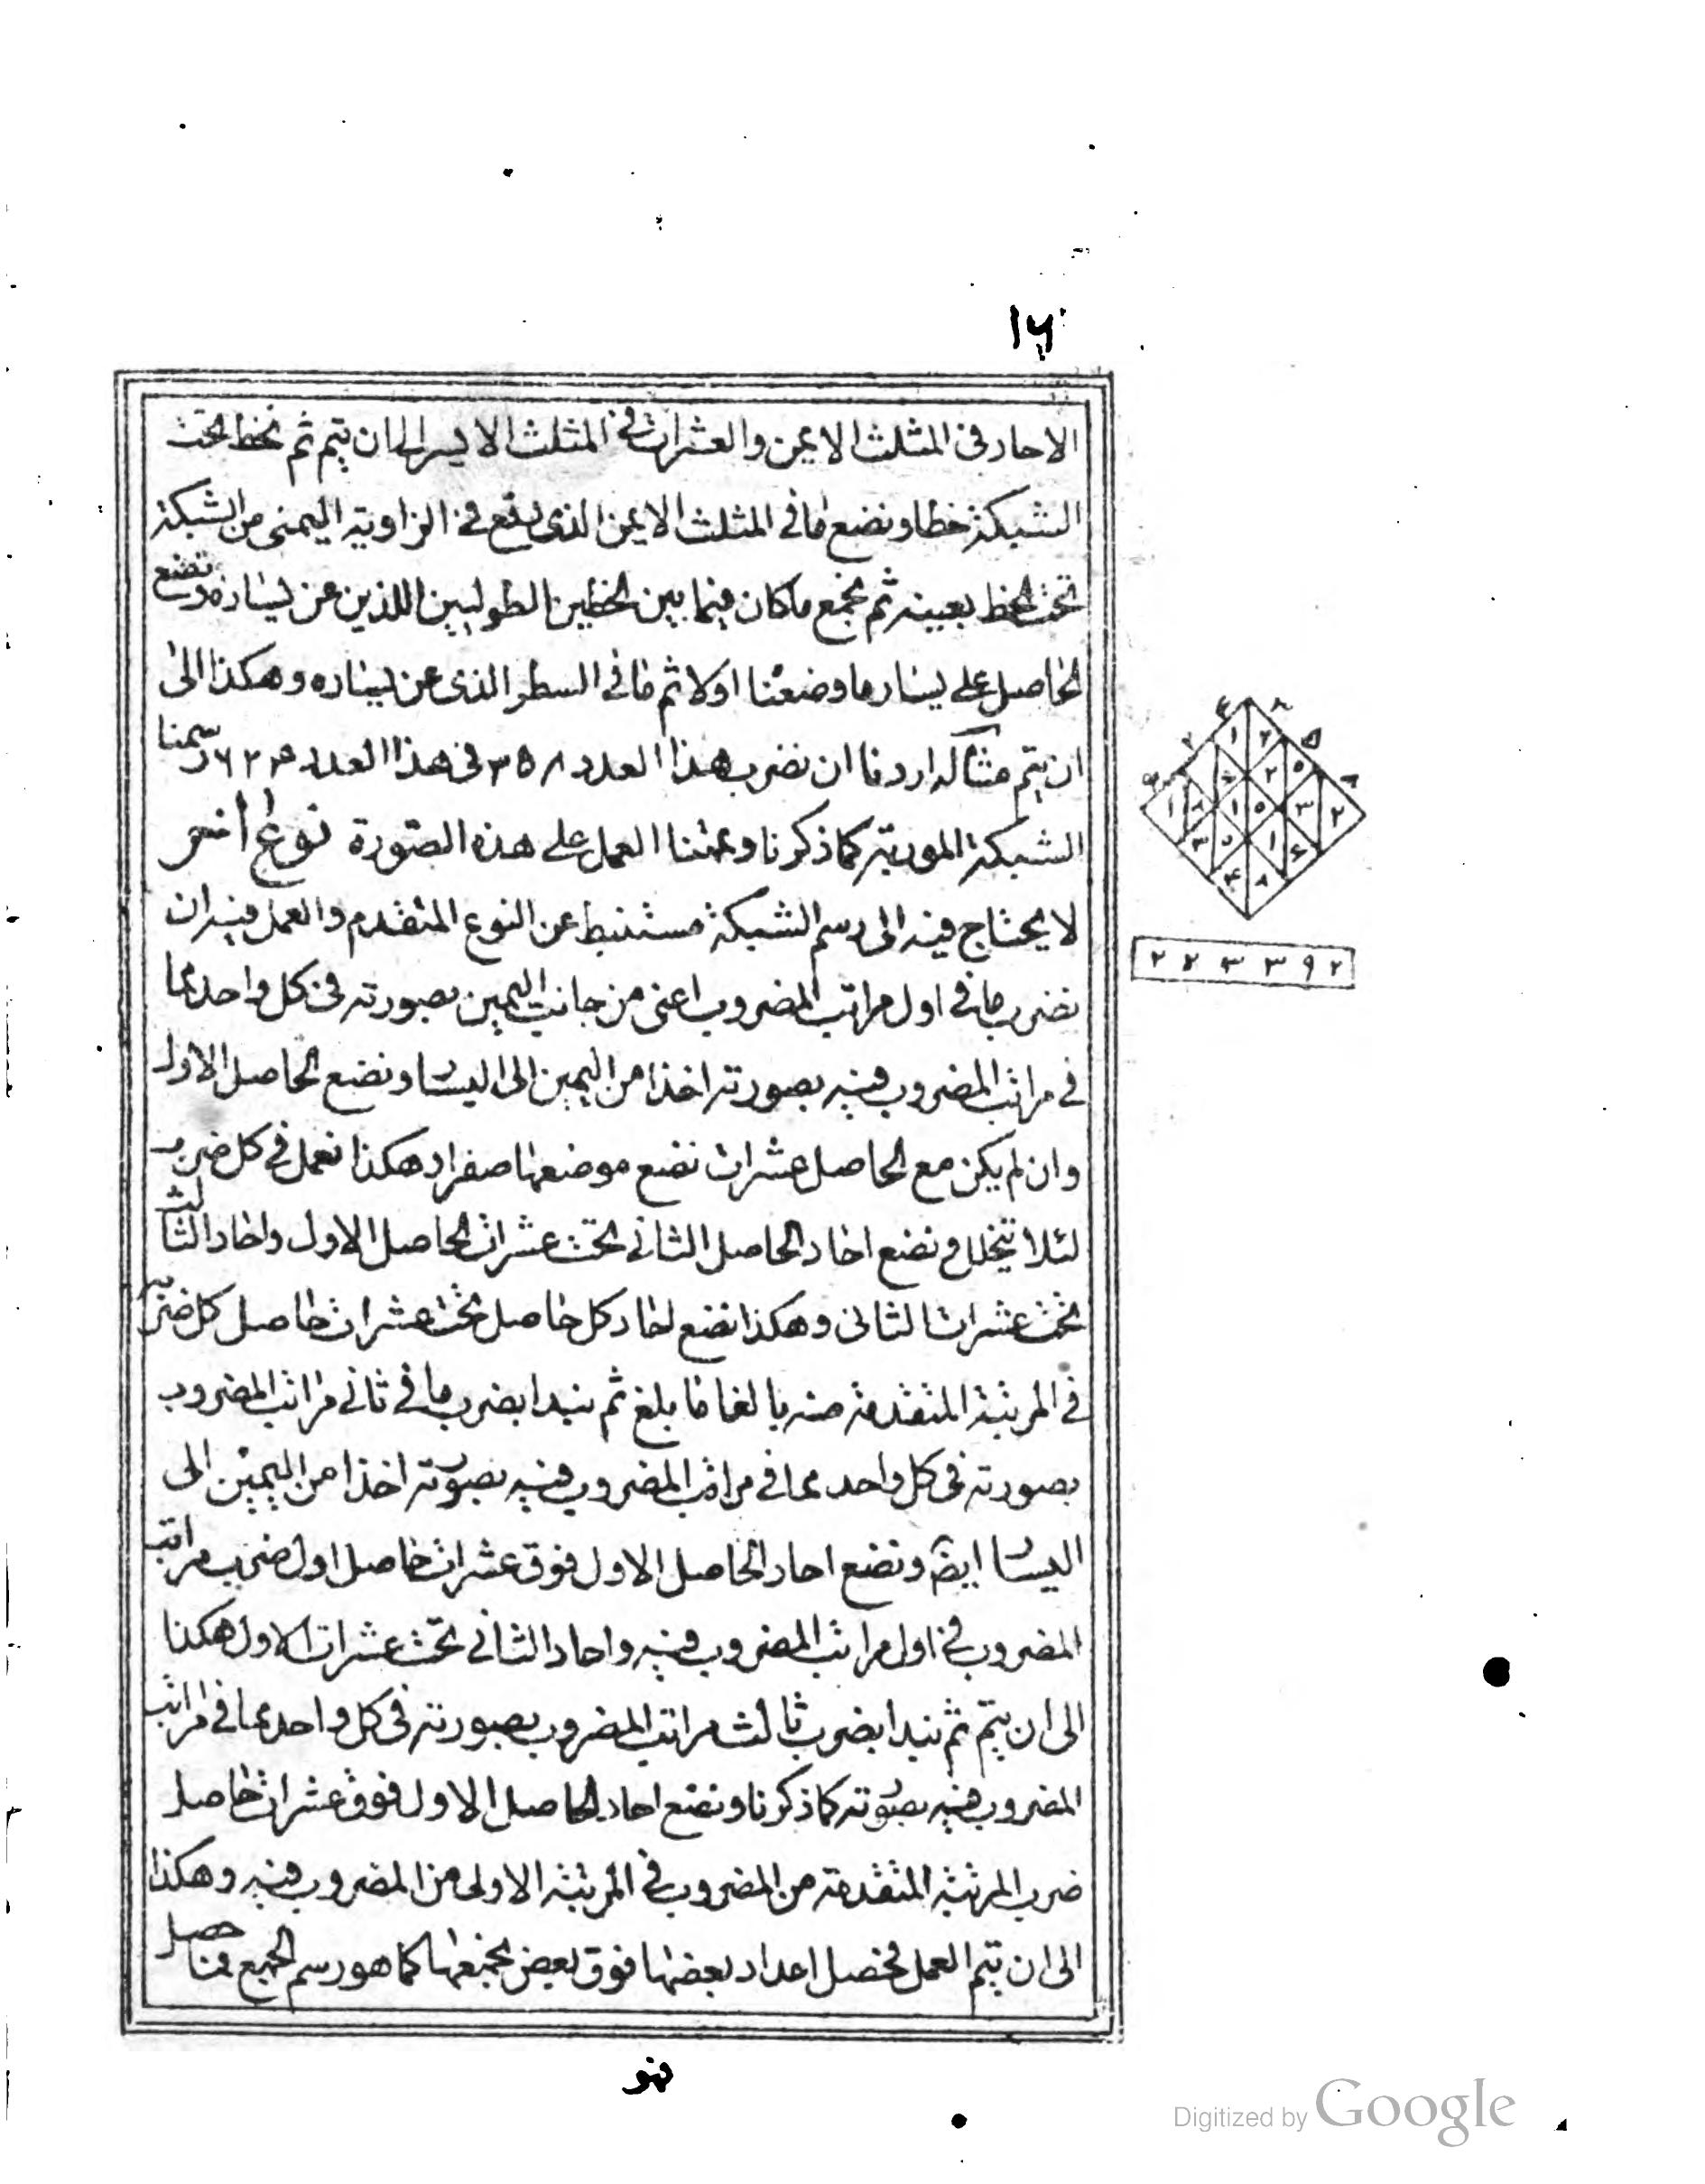 ١٦
الاحاد فى المثلث الايمن والعشرات فى المثلث الايسر الى ان يتم ثم نخط تحت
الشبكة خطا ونضع ما فى المثلث الايمن الذى يقع فى الزاوية اليمنى من الشبكة
تحت الخط بعينه ثم نجمع ما كان فيما بين الخطين الطوليين اللذين عن يساره ونضع
الحاصل على يسار ما وضعنا اولا ثم ما فى السطر الذى عن يساره وهكذا الى
ان يتم مثاله اردنا ان نضرب هذا العدد ٣٥٨ فى هذا العدد ٦٢٤ رسمنا
الشبكة الموربة كما ذكرنا وعملنا العمل على هذه الصورة نوع آخر
لا يحتاج فيه الى رسم الشبكة مستنبط عن النوع المتقدم والعمل فيه ان
نضرب ما فى اول مراتب المضروب اعنى من جانب اليمين بصورته فى كل واحد مما
فى مراتب المضروب فيه بصورته اخذا من اليمين الى اليسار ونضع الحاصل الاول
وان لم يكن مع الحاصل عشرات نضع موضعها صفرا وهكذا نعمل فى كل ضرب
لئلا يختل ونضع احاد الحاصل الثانى تحت عشرات الحاصل الاول واحاد الثالث
تحت عشرات الثانى وهكذا نضع احاد كل حاصل تحت عشرات حاصل كل ضرب
فى المرتبة المتقدمة منه بالغا ما بلغ ثم نبدا بضرب ما فى ثانى مراتب المضروب
بصورته فى كل واحد مما فى مراتب المضروب فيه بصورته اخذا من اليمين الى
اليسار ايضا ونضع احاد الحاصل الاول فوق عشرات حاصل اول ضرب مراتب
المضروب فى اول مراتب المضروب فيه واحاد الثانى تحت عشرات الاول هكذا
الى ان يتم ثم نبدا بضرب ثالث مراتب المضروب بصورته فى كل واحد مما فى مراتب
المضروب فيه بصورته كما ذكرنا ونضع احاد الحاصل الاول فوق عشرات حاصل
ضرب المرتبة المتقدمة من المضروب فى المرتبة الاولى من المضروب فيه وهكذا
الى ان يتم العمل فحصل اعداد بعضها فوق بعض نجمعها كما هو رسم الجمع فما حصل
فهو
٢ ٢ ٣ ٣ ٩ ٢
Digitized by Google